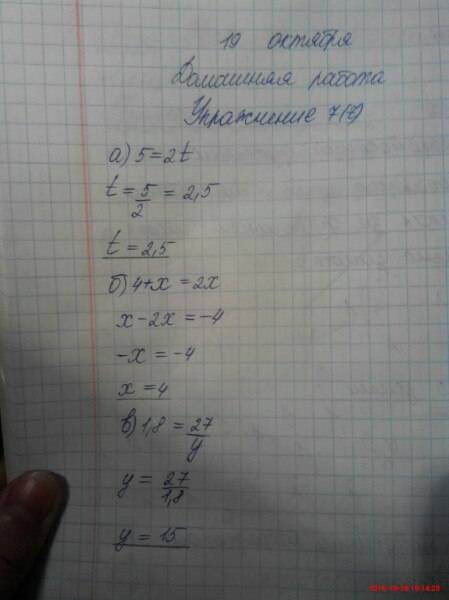 19 октября
Домашняя работа
Упражнение 7(7)
а) 5=2t
t = 5/2 = 2,5
t = 2,5
б) 4+x = 2x
x - 2x = -4
-x = -4
x = 4
в) 1,8 = 27/y
y = 27/1,8
y = 15